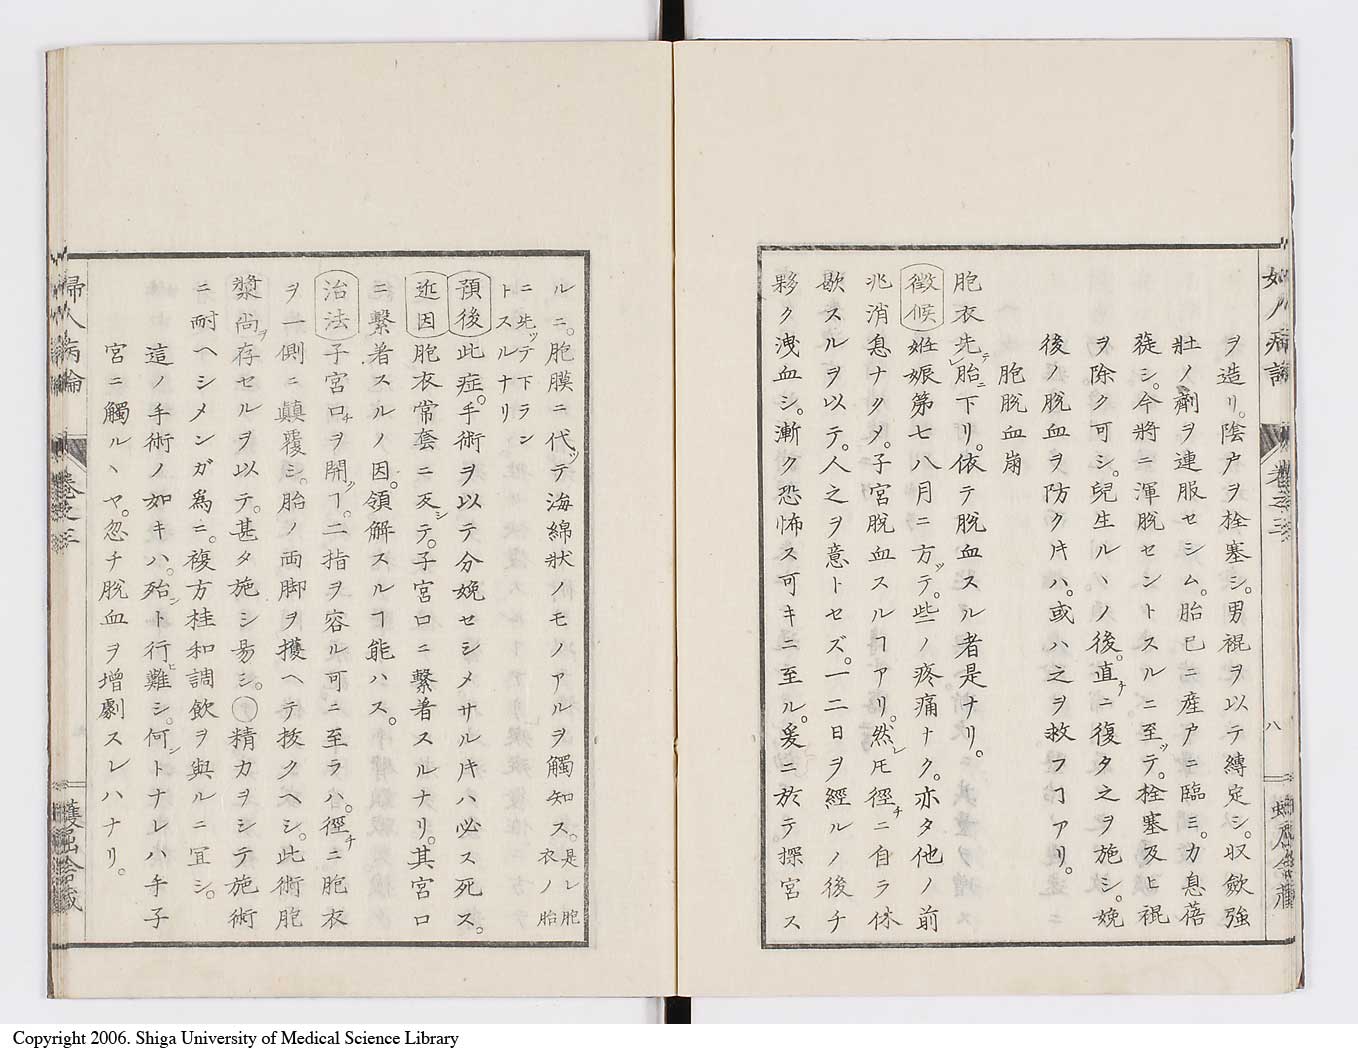 ヲ造リ。陰户ヲ栓塞シ。男裩ヲ以テ縛定シ。収歛強
壮ノ劑ヲ連服セシム。胎已ニ産戸ニ臨ミ。力息蓓
蓰シ。今將ニ渾脱セントスルニ至ッテ。栓塞及ヒ裩
ヲ除ク可シ。兒生ルヽノ後。直チニ復タ之ヲ施シ。娩
後ノ脱血ヲ防ク𪜈ハ。或ハ之ヲ救フヿアリ。
胞脱血崩
胞衣先テ胎ニ下リ。依テ脱血スル者是ナリ。
徴候 姙娠第七八月ニ方ッテ。些ノ疼痛ナク。亦タ他ノ前
兆消息ナクメ。子宮脱血スルヿアリ。然レ𪜈徑チニ自ラ休
歇スルヲ以テ。人之ヲ意トセズ。一二日ヲ經ルノ後チ
夥ク洩血シ。漸ク恐怖ス可キニ至ル。爰ニ於テ。探宮ス
婦人病論 卷之三
八
ルニ。胞膜ニ代ッテ海綿狀ノモノアルヲ觸知ス。是レ胞衣ノ胎
ニ先ッテ下ラントスルナリ
預後 此症。手術ヲ以テ分娩セシメサル𪜈ハ必ス死ス。
近因 胞衣常套ニ反シテ。子宮口ニ繫着スルナリ。其宮口
ニ繫着スルノ因。領解スルヿ能ハス。
治法 子宮口チヲ開ヿ。二指ヲ容ル可ニ至ラハ。徑チニ胞衣
ヲ一側ニ顚覆シ。胎ノ両脚ヲ擭ヘテ拔クヘシ。此術胞
漿尚ヲ存セルヲ以テ。甚タ施シ易シ。〇精力ヲシテ施術
ニ耐ヘシメンガ爲ニ。複方桂和調飲ヲ與ルニ冝シ。
這ノ手術ノ如キハ。殆ント行ヒ難シ。何トナレハ手子
宮ニ觸ルヽヤ。忽チ脱血ヲ增劇スレハナリ。
婦人病論 卷之三
蠖屈舎藏
Copyright 2006. Shiga University of Medical Science Library